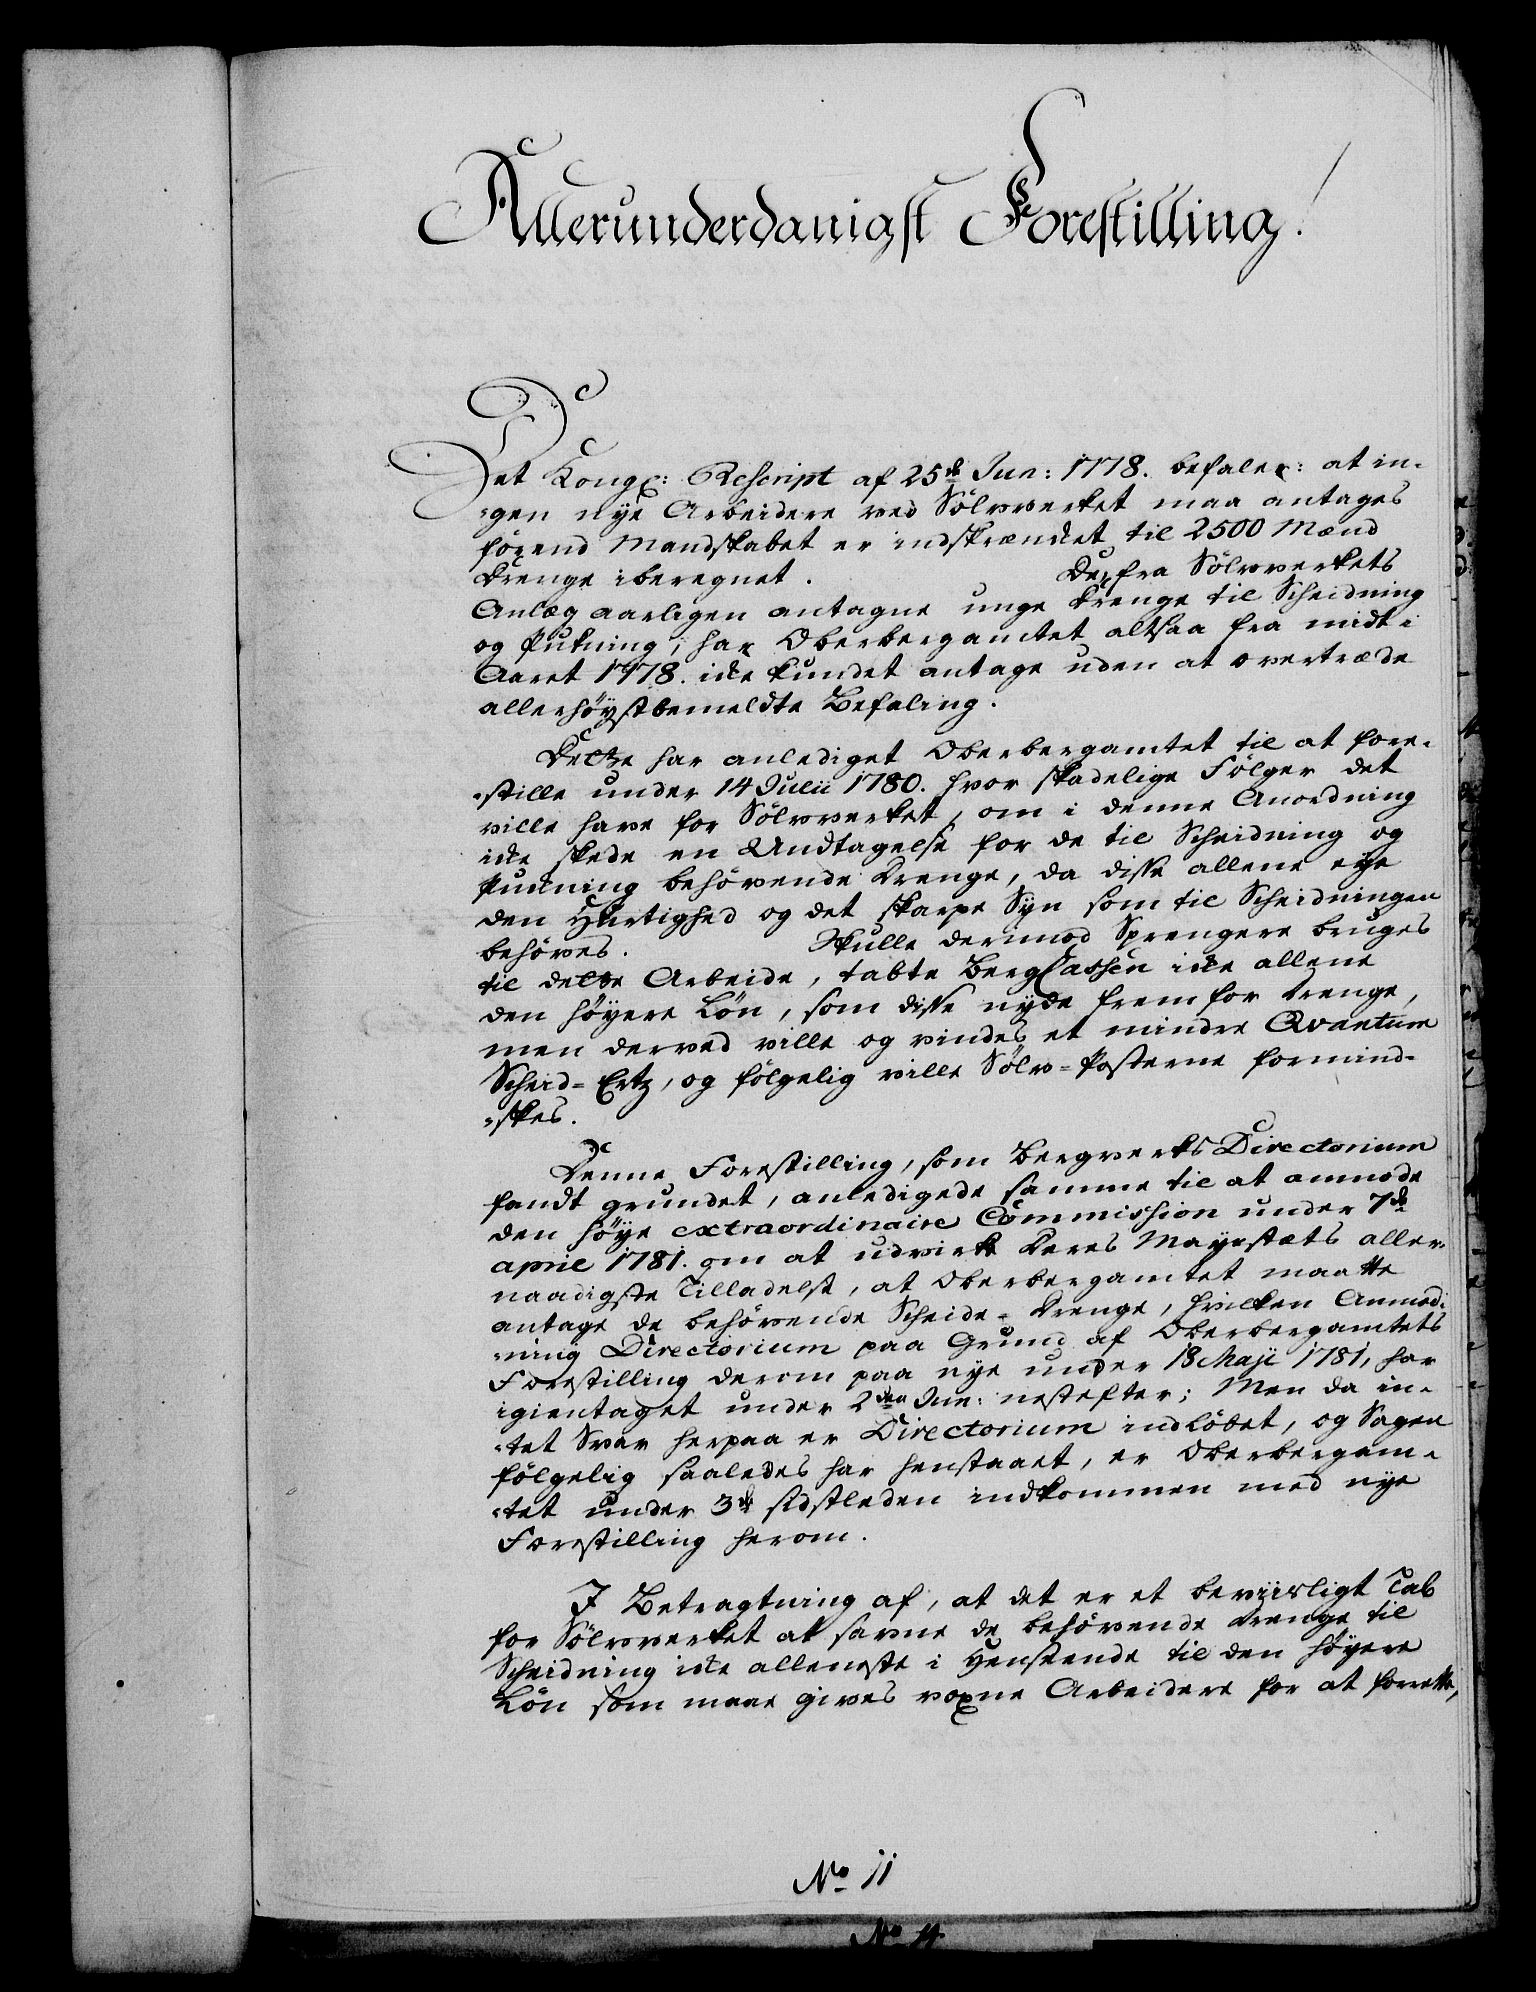 Allerunderdanigst Forestilling!
Det Kongl: Rescript af 25de Jun: 1778. befaler: at in-
-gen nye Arbeidere ved Sölvverket maa antages
förend Mandskabet er indskrænket til 2500 Mænd
Drenge iberegnet. De, fra Sölvverkets
Anlæg aarligen antagne unge Drenge til Scheidning
og Pukning, har Oberbergamtet altsaa fra midt i
Aaret 1778. icke kundet antage uden at overtræde
allerhöystbemeldte Befaling.
Dette har anlediget Oberbergamtet til at fore-
-stille under 14 Julii 1780. hvor skadelige Fölger det
ville have for Sölvverket, om i denne Anordning
icke skede en Undtagelse for de til Scheidning og
Puckning behövende Drenge, da disse allene eye
den Hurtighed og det skarpe Syn som til Scheidningen
behöves. Skulle derimod Sprengere bruges
til dette Arbeide, tabte BergCassen icke allene
den höyere Lön, som disse nyde frem for Drenge,
men derved ville og vindes et mindre Qvantum
Scheid-Ertz, og fölgelig ville Sölv-Posterne formind-
-skes.
Denne Forestilling, som Bergverks Directorium
fandt grundet, anledigede samme til at anmode
den höye extraordinaire Commission under 7de
April 1781. om at udvirke Deres Mayestæts aller-
naadigste Tilladelse, at Oberbergamtet maatte
antage de behövende Scheide-Drenge, hvilken Anmod-
-ning Directorium paa Grund af Oberbergamtets
Forestilling derom paa nye under 18 Maji 1781, har
igientaget under 2den Jun: nestefter; Men da in-
-tet Svar herpaa er Directorium indlöbet, og Sagen
fölgelig saaledes har henstaaet, er Oberbergam-
-tet under 3de sidstleden indkommen med nye
Forestilling herom.
I Betragtning af, at det er et beviisligt Tab
for Sölvverket at savne de behövende Drenge til
Scheidning icke alleneste i Henseende til den höyere
Lön som maae gives voxne Arbeidere for at forrette,
No 11
No 4